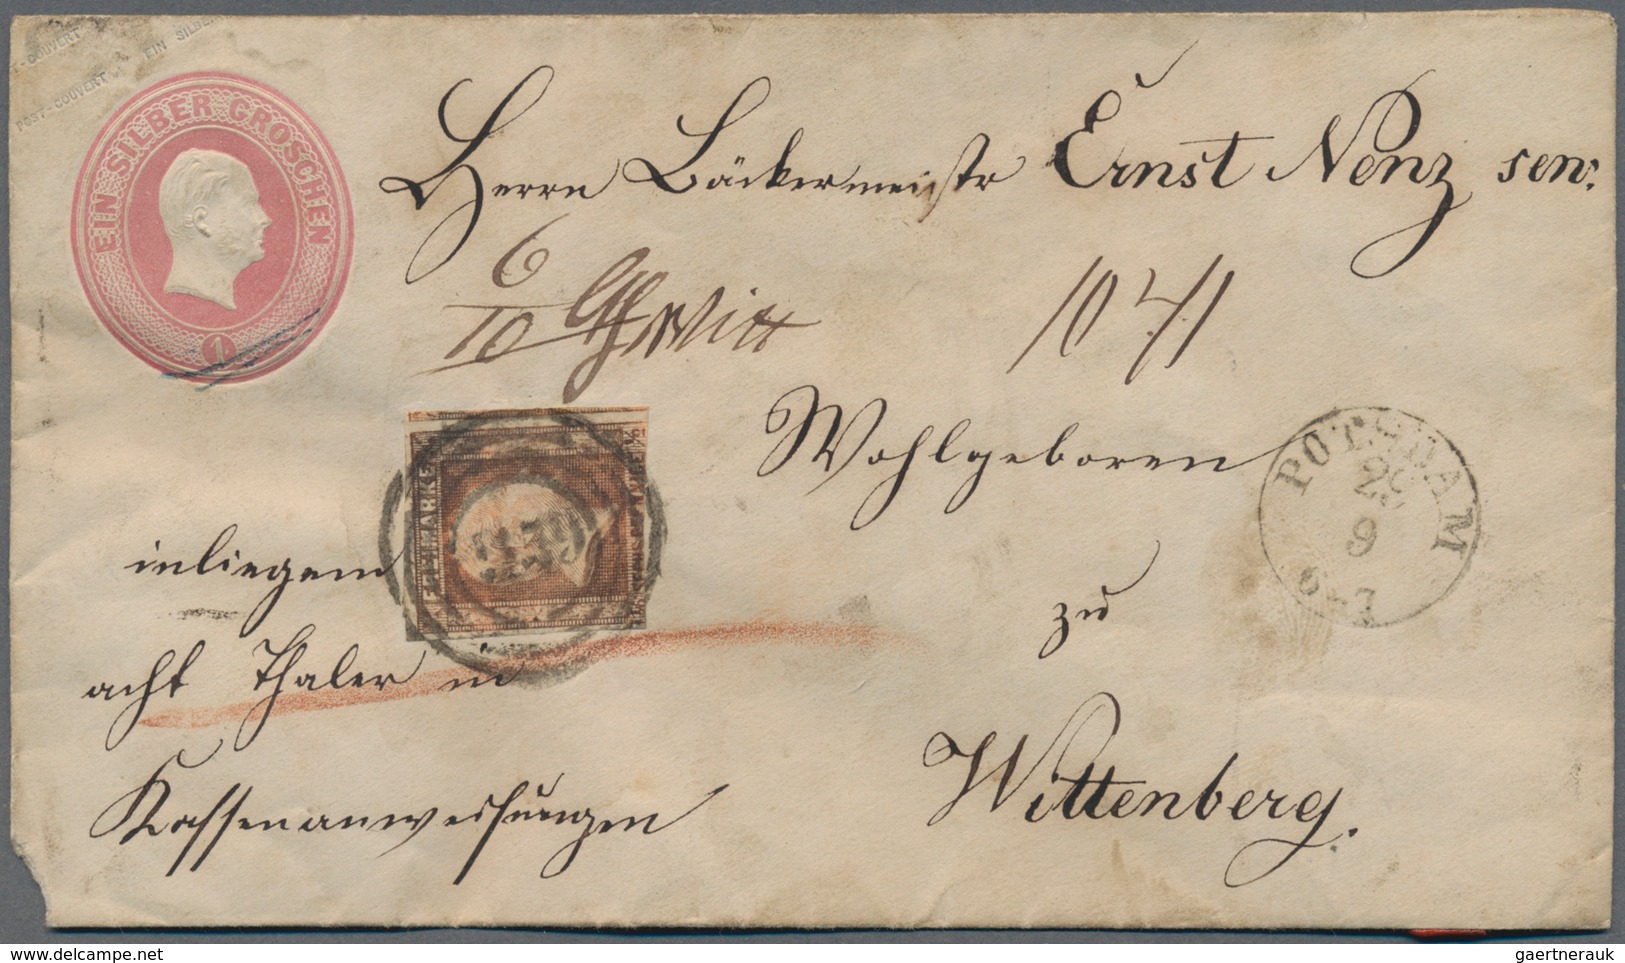 POST-COUVERT EIN SILBER
POST-COUVERT
EIN SILBER GROSCHEN
1
Herrn Bäckermeistr Ernst Nenz sen:
6
10
1041
Wohlgeboren
FREIMARKE
POTSDAM
9
6-7
inliegend
acht Thaler in
Kassenanweisungen
zu
Wittenberg.
delcampe.net
gaertnerauk